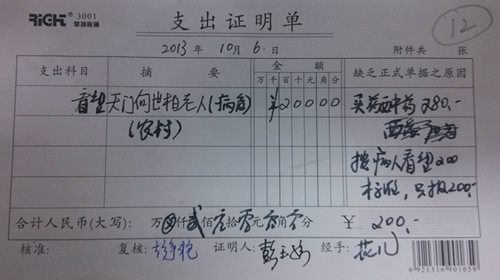 RiCH® 3001
支出证明单
12
2013年 10月 6日
附件共 张
支出科目 摘要 金额 缺乏正式单据之原因
万千百十元角分
看望天门何世柏老人(病房) ¥20000 买药西中药280.-
(农村)
按病人看望200
标准,只报200.-
合计人民币(大写): 万⊗仟贰佰零拾零元零角零分 ¥ 200.-
核准: 复核: 证明人: 经手:
6921316901659